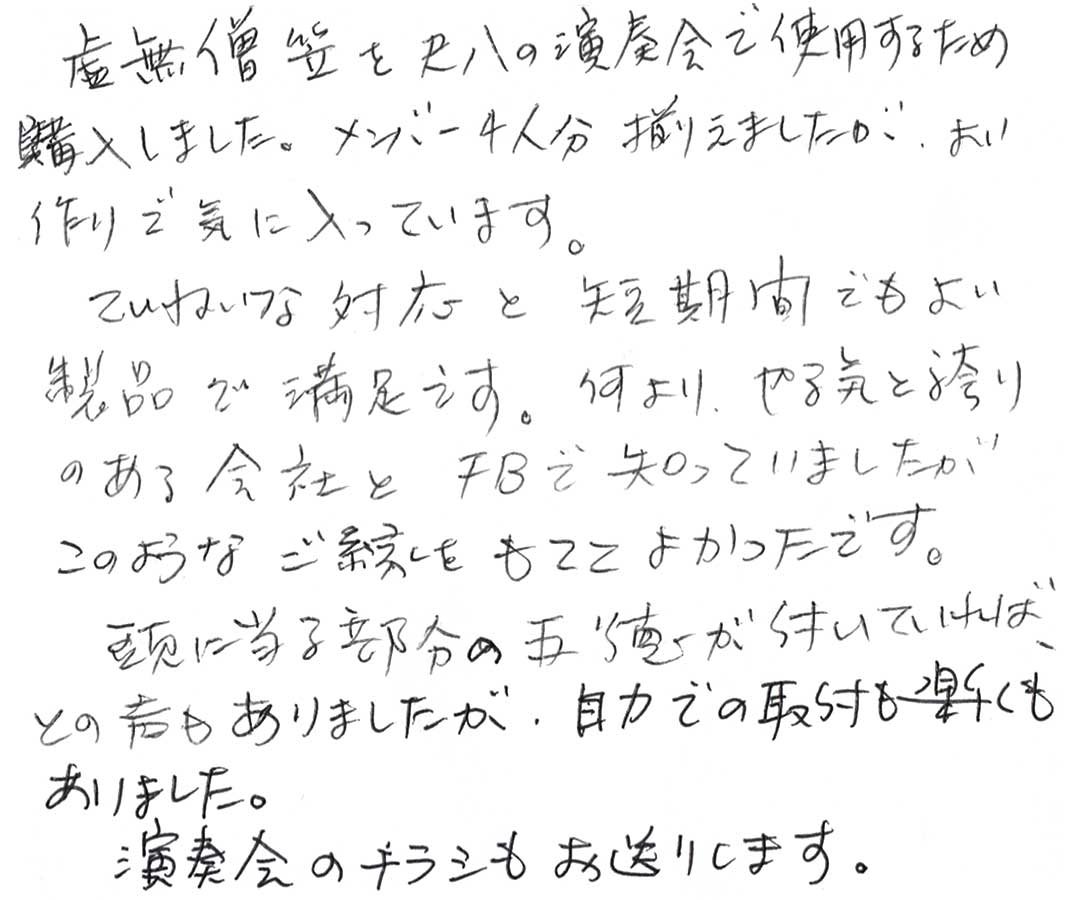 虚無僧笠を尺八の演奏会で使用するため
購入しました。メンバー4人分揃えましたが、よい
作りで気に入っています。
ていねいな対応と短期間でもよい
製品で満足です。何より、やる気と誇り
のある会社とFBで知っていましたが
このようなご縁をもててよかったです。
頭に当る部分の五徳が付いていれば、
との声もありましたが、自力での取付も楽しくも
ありました。
演奏会のチラシもお送りします。